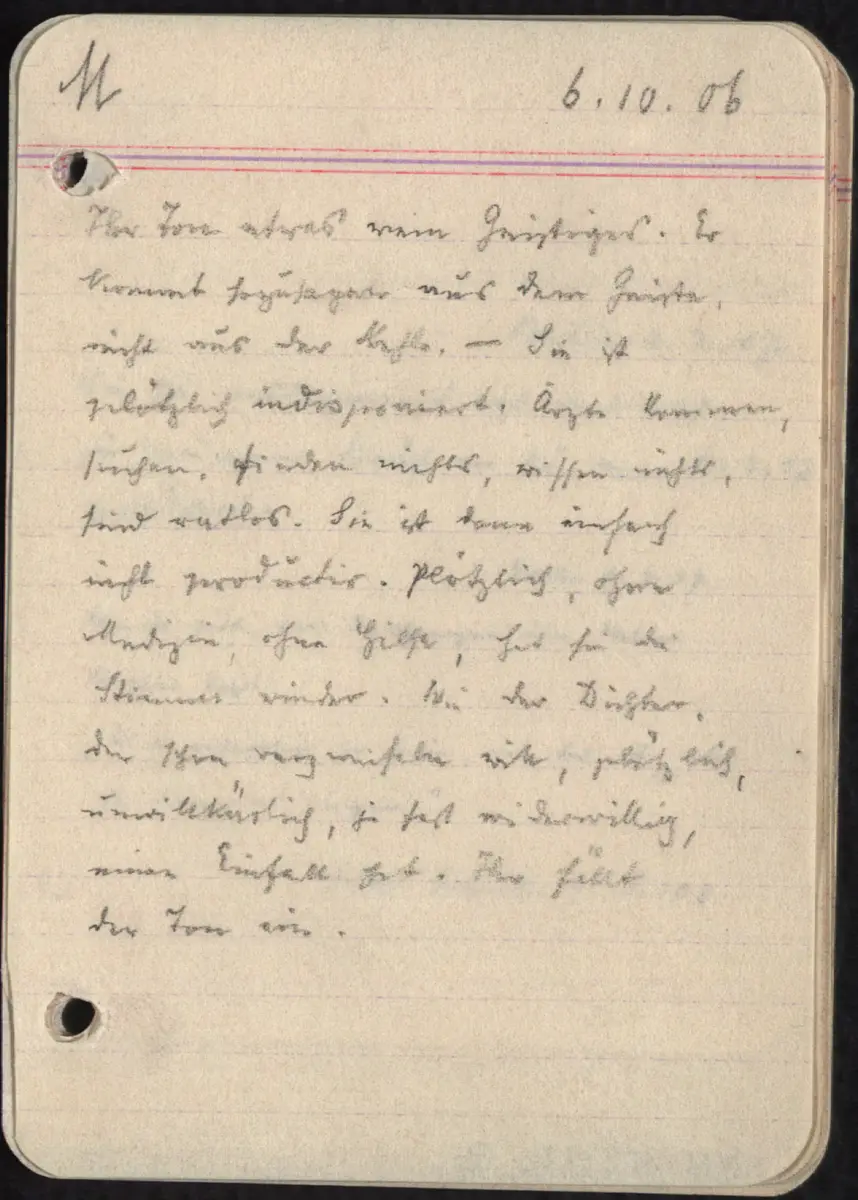 M 6.10.06
Ihr Ton etwas rein Geistiges. Er
kommt sozusagen aus dem Geiste,
nicht aus der Kehle. — Sie ist
plötzlich indisponiert. Ärzte kommen,
suchen, finden nichts, wissen nichts,
sind ratlos. Sie ist dann einfach
nicht productiv. Plötzlich, ohne
Medizin, ohne Hilfe, hat sie die
Stimme wieder. Wie der Dichter,
der schon verzweifeln will, plötzlich,
unwillkürlich, ja fast widerwillig,
einen Einfall hat. Ihr fällt
der Ton ein.